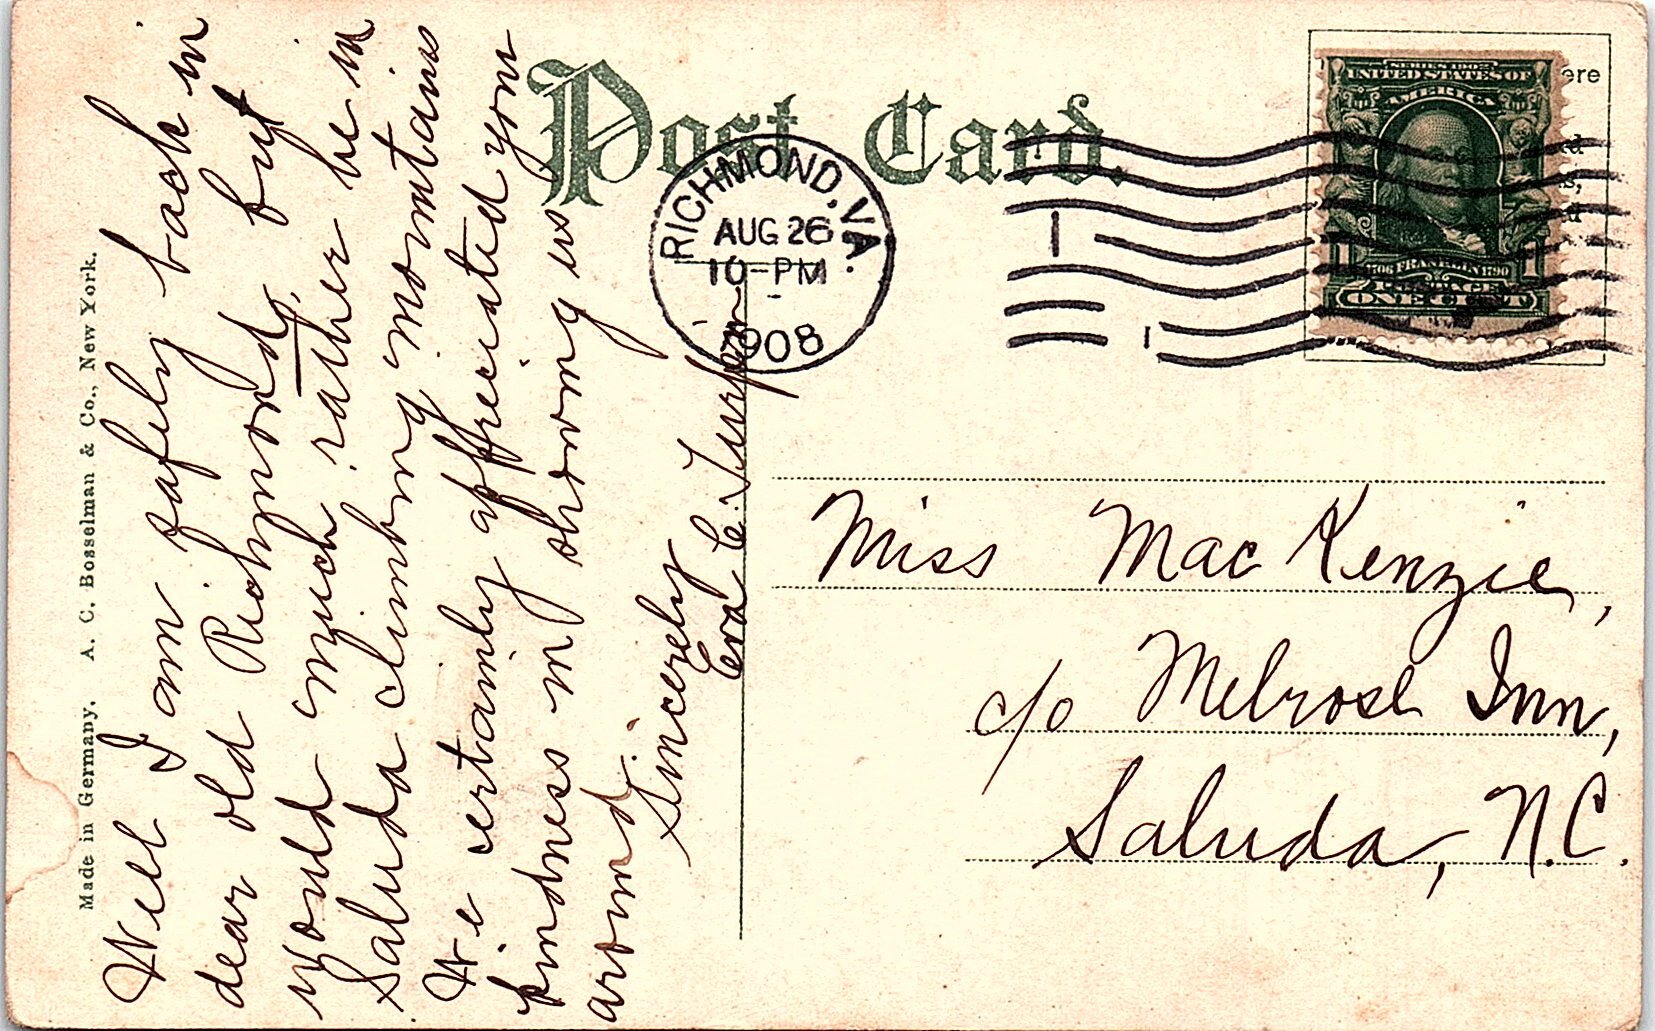 Post Card.
RICHMOND, VA.
AUG 26
10-PM
1908
SERIES 1902
UNITED STATES OF
AMERICA
FRANKLIN 1790
POSTAGE
1 ONE CENT 1
ere
Made in Germany. A. C. Bosselman & Co., New York.
Well I am safely back in
dear old Richmond, but
would much rather be in
Saluda climbing mountains
We certainly appreciated your
kindness in showing us
around.
Sincerely
Eva C.
Miss MacKenzie,
c/o Melrose Inn,
Saluda, N.C.